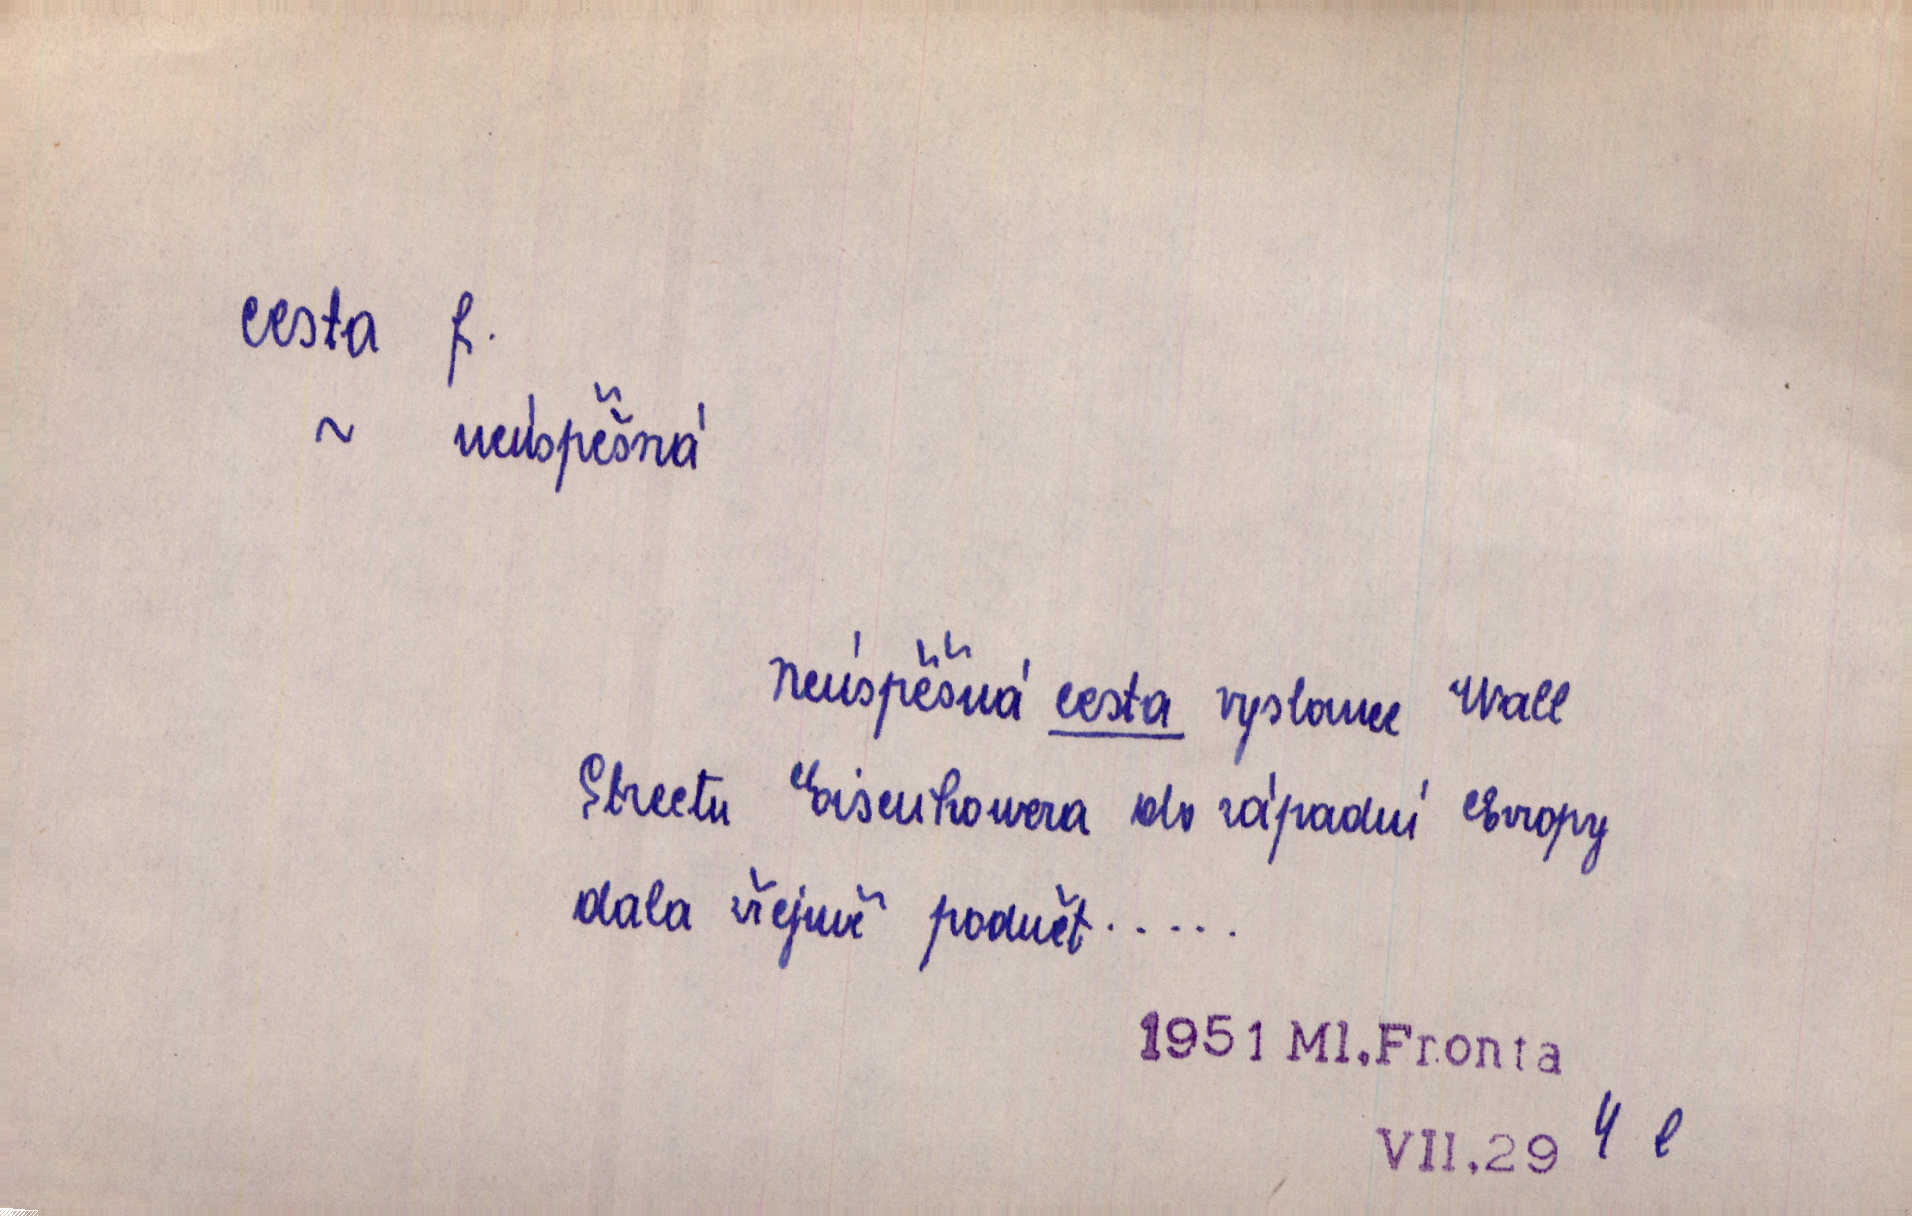 cesta f.
~ neúspěšná
Neúspěšná cesta vyslance Wall
Streetu Eisenhowera do západní Evropy
dala zřejmě podnět.....
1951 Ml.Fronta
VII.29 4 e